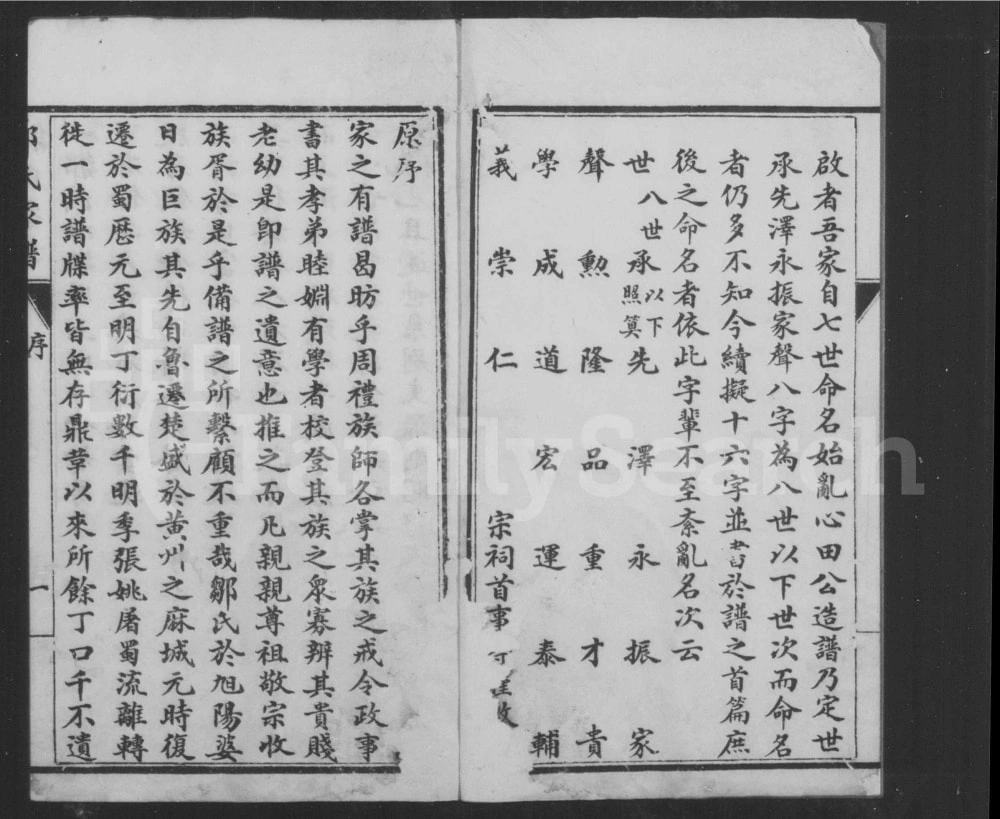 啟者吾家自七世命名始亂心田公造譜乃定世
承先澤永振家聲八字為八世以下世次而命名
者仍多不知今續擬十六字並書於譜之首篇庶
後之命名者依此字輩不至紊亂名次云
世八世承以下照算先澤永振家
聲勲隆品重才貴
學成道宏運泰輔
義崇仁
宗祠首事
原序
家之有譜曷昉乎周禮族師各掌其族之戒令政事
書其孝弟睦婣有學者校登其族之眾寡辨其貴賤
老幼是卽譜之遺意也推之而凡親親尊祖敬宗收
族胥於是乎備譜之所繫顧不重哉鄒氏於旭陽婆
日為巨族其先自魯遷楚盛於黃州之麻城元時復
遷於蜀歷元至明丁衍數千明季張姚屠蜀流離轉
徙一時譜牒率皆無存鼎革以來所餘丁口千不遺
氏家譜
序
一
FamilySearch